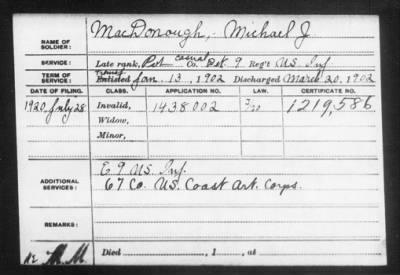 NAME OF SOLDIER: MacDonough, Michael J.
SERVICE: Late rank, Pvt casual Co. Det. 9 Reg't US Inf
TERM OF SERVICE: Enlisted Jan. 13, 1902 Discharged March 20, 1902
DATE OF FILING. CLASS. APPLICATION NO. LAW. CERTIFICATE NO.
1920 July 28 Invalid, 1438002 1219,586
Widow,
Minor,
ADDITIONAL SERVICES: E 9 US. Inf.
67 Co. U.S. Coast Art. Corps.
REMARKS:
M.M. Died , 1 , at